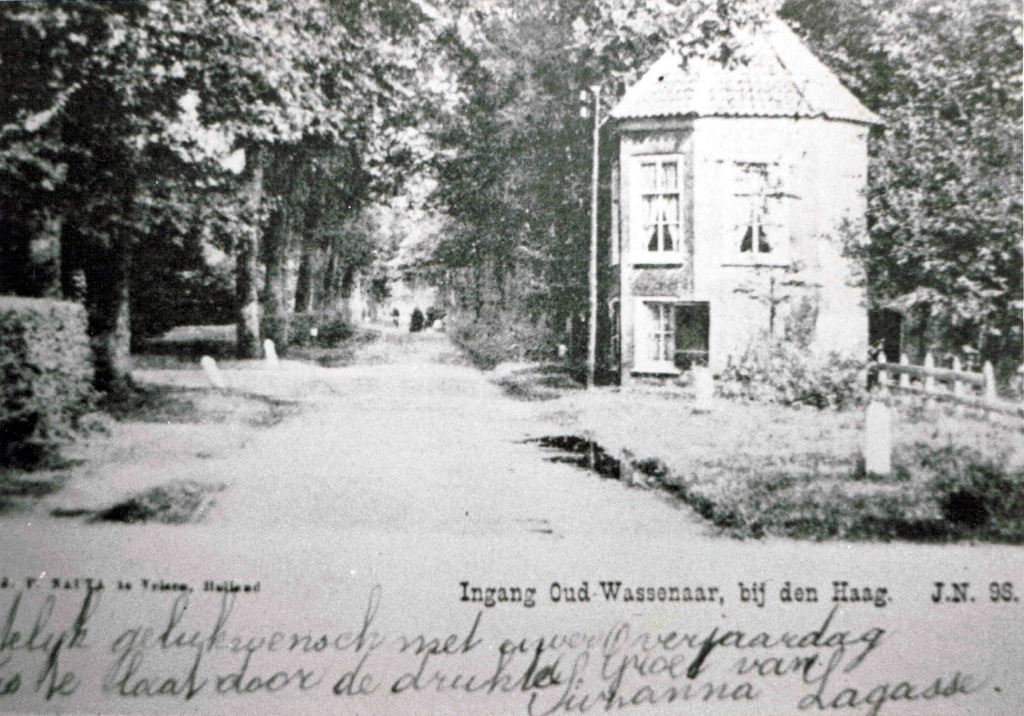 J. F. NAUTA te Velsen, Holland
Ingang Oud-Wassenaar, bij den Haag. J.N. 98.
gelukwensch met uwen verjaardag
te laat door de drukte Groet van
Lagasse.